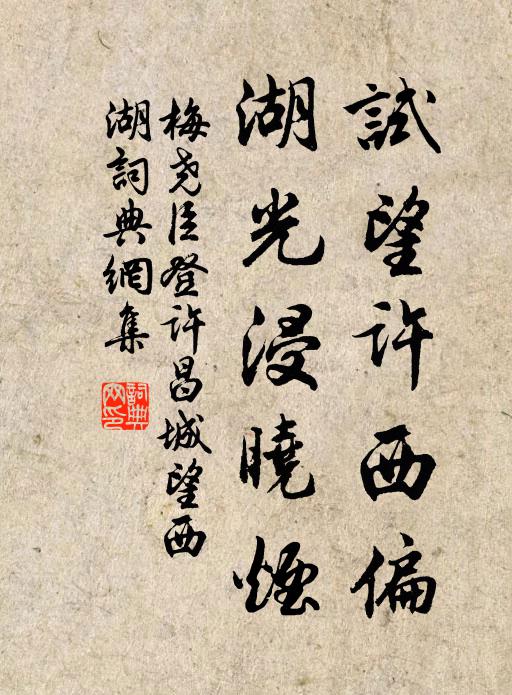 試望許西偏
湖光浸曉煙
梅尧臣登许昌城望西
湖詞典網集
詞典網印